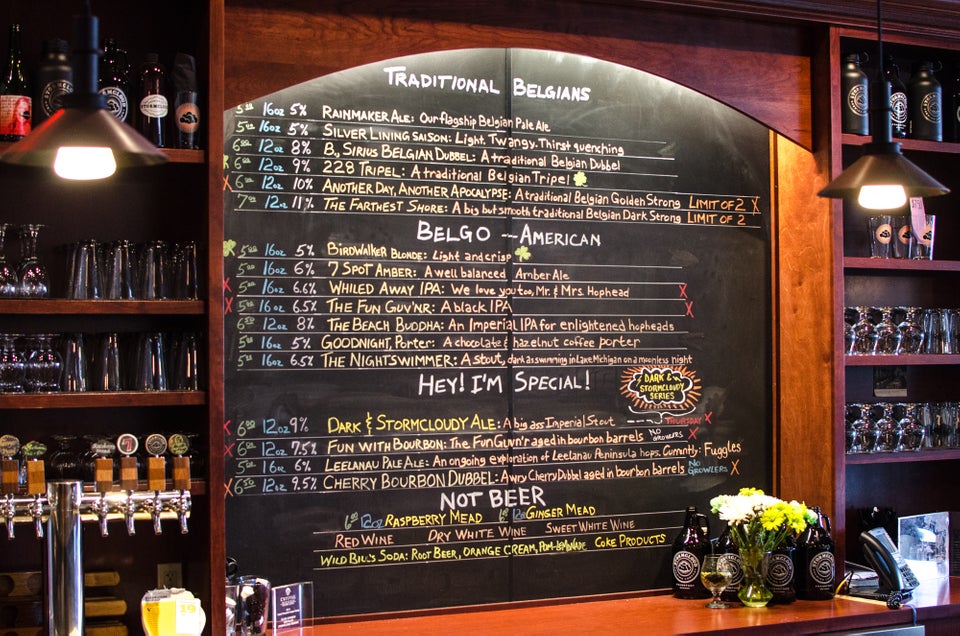 TRADITIONAL BELGIANS
5⁰⁰ 16oz 5% RAINMAKER ALE: Our flagship Belgian Pale Ale
5⁰⁰ 16oz 5% SILVER LINING SAISON: Light. Twangy. Thirst quenching
6⁰⁰ 12oz 8% B, SIRIUS BELGIAN DUBBEL: A traditional Belgian Dubbel
6⁰⁰ 12oz 9% 228 TRIPEL: A traditional Belgian Tripel
X 6⁰⁰ 12oz 10% ANOTHER DAY, ANOTHER APOCALYPSE: A traditional Belgian Golden Strong LIMIT OF 2 X
7⁰⁰ 12oz 11% THE FARTHEST SHORE: A big but smooth traditional Belgian Dark Strong LIMIT OF 2
BELGO-AMERICAN
5⁰⁰ 16oz 5% BIRDWALKER BLONDE: Light and crisp
5⁰⁰ 16oz 6% 7 SPOT AMBER: A well balanced Amber Ale
X 5⁰⁰ 16oz 6.6% WHILED AWAY IPA: We love you too, Mr. & Mrs. Hophead X
X 5⁰⁰ 16oz 6.5% THE FUN GUV'NR: A black IPA X
6⁰⁰ 12oz 8% THE BEACH BUDDHA: An Imperial IPA for enlightened hopheads
5⁰⁰ 16oz 5% GOODNIGHT, PORTER: A chocolate & hazelnut coffee porter
5⁰⁰ 16oz 6.5% THE NIGHTSWIMMER: A stout, dark as swimming in Lake Michigan on a moonless night
HEY! I'M SPECIAL!
DARK & STORMCLOUDY SERIES
THURSDAY
X 6⁰⁰ 12oz 9% DARK & STORMCLOUDY ALE: A big ass Imperial Stout X
X 6⁰⁰ 12oz 7.5% FUN WITH BOURBON: The Fun Guv'r aged in bourbon barrels NO GROWLERS X
5⁰⁰ 16oz 6% LEELANAU PALE ALE: An ongoing exploration of Leelanau Peninsula hops. Currently: Fuggles
X 6⁰⁰ 12oz 9.5% CHERRY BOURBON DUBBEL: A wry Cherry Dubbel aged in bourbon barrels NO GROWLERS X
NOT BEER
6⁰⁰ 12oz RASPBERRY MEAD 6⁰⁰ 12oz GINGER MEAD
RED WINE DRY WHITE WINE SWEET WHITE WINE
WILD BILL'S SODA: ROOT BEER, ORANGE CREAM, POM-LEMONADE COKE PRODUCTS
STORMCLOUD